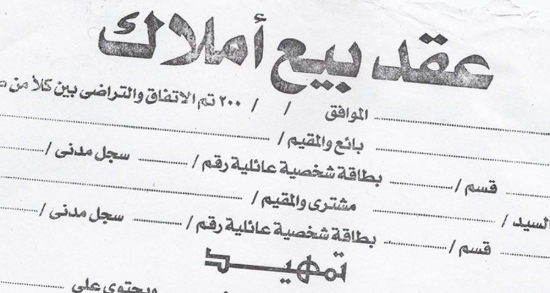 عقد بيع أملاك
الموافق / / ٢٠٠ تم الاتفاق والتراضى بين كلاً من
بائع والمقيم /
قسم / بطاقة شخصية عائلية رقم / سجل مدنى /
السيد / مشترى والمقيم /
قسم / بطاقة شخصية عائلية رقم / سجل مدنى /
تمهيد
ويحتوى على